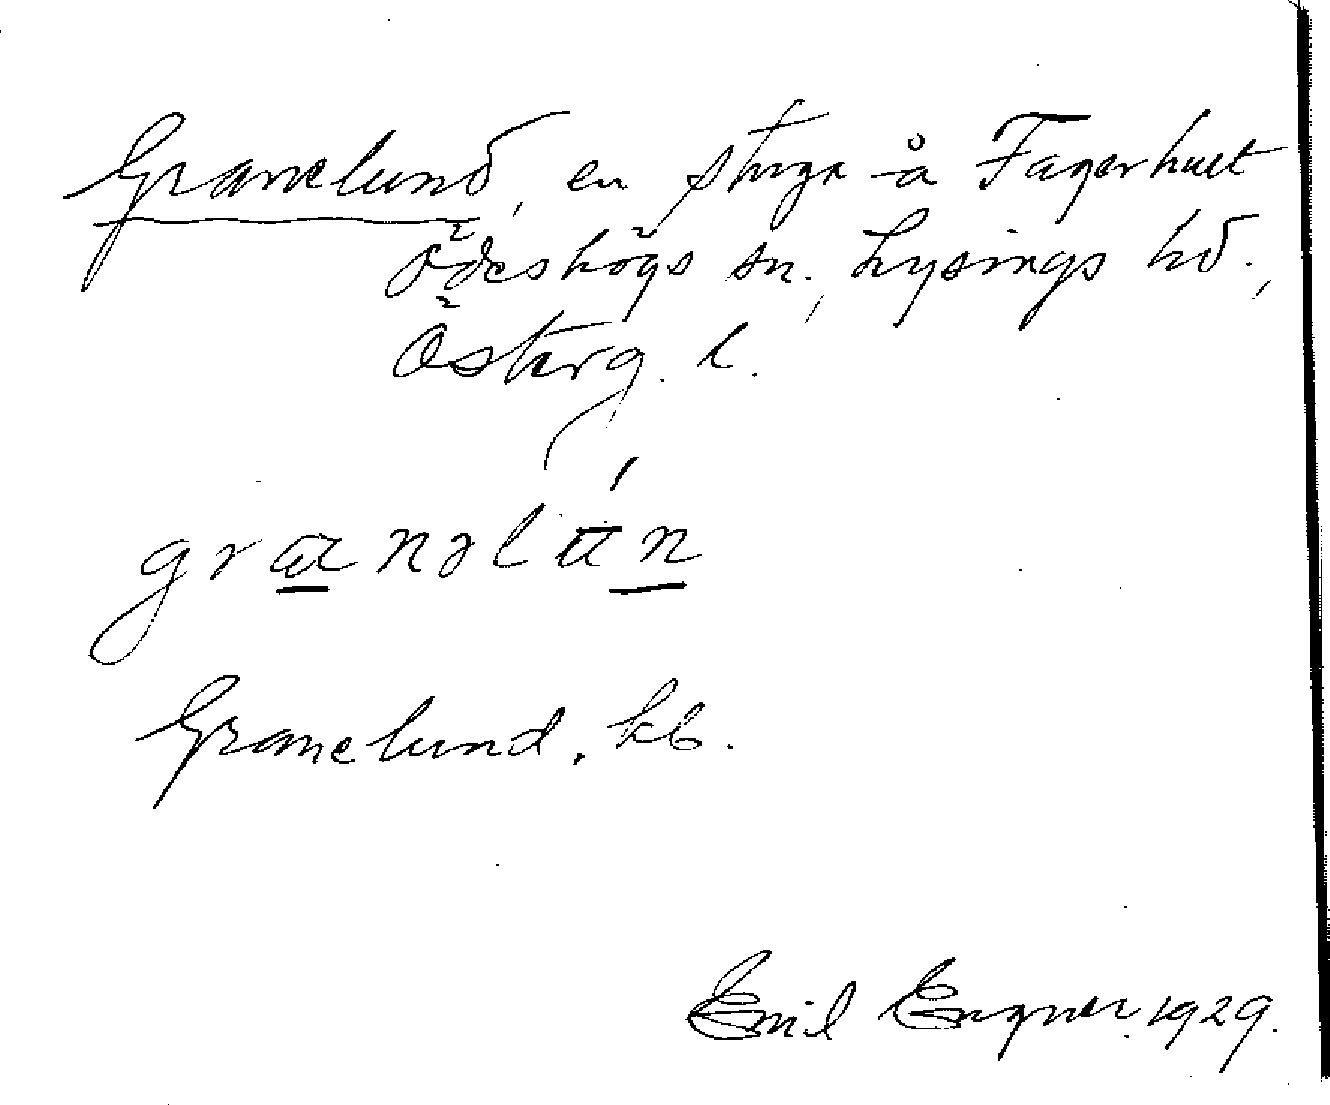 Granelund, en stuga å Fagerhult
Ödeshögs sn., Lysings hd.,
Österg. l.
granəlun
Granelund. kb.
Emil Engner. 1929.